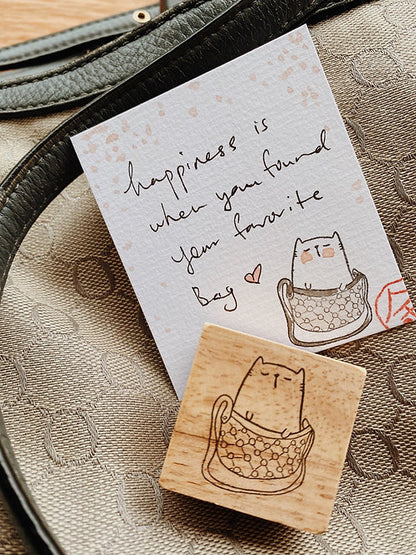 happiness is
when you found
your favorite
Bag